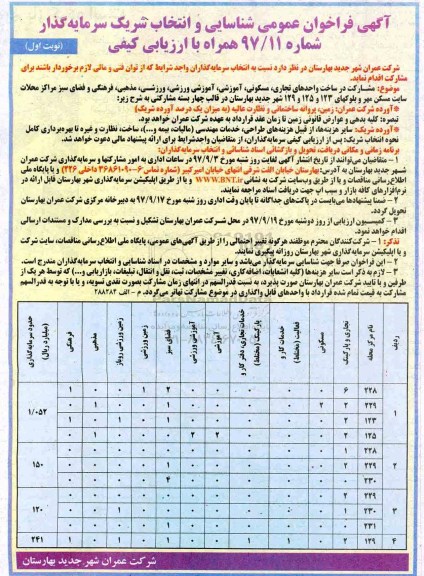 آگهی فراخوان عمومی شناسایی و انتخاب شریک سرمایه‌گذار
شماره ۹۷/۱۱ همراه با ارزیابی کیفی
(نوبت اول)
شرکت عمران شهر جدید بهارستان در نظر دارد نسبت به انتخاب سرمایه‌گذاران واجد شرایط که از توان فنی و مالی لازم برخوردار باشند برای
مشارکت اقدام نماید.
موضوع: مشارکت در ساخت واحدهای تجاری، مسکونی، آموزشی، آموزشی ورزشی، ورزشی، مذهبی، فرهنگی و فضای سبز مراکز محلات
سایت مسکن مهر و بلوکهای ۱۲۳ و ۱۲۵ و ۱۲۹ شهر جدید بهارستان در قالب چهار بسته مشارکتی به شرح زیر:
* آورده شرکت عمران: زمین، پروانه ساختمانی و نظارت عالیه (به میزان یک درصد آورده شریک)
تبصره: کلیه بدهی و عوارض قانونی زمین تا زمان عقد قرارداد به عهده شرکت عمران خواهد بود.
* آورده شریک: سایر هزینه‌ها، از قبیل هزینه‌های طراحی، خدمات مهندسی (مالیات، بیمه و...)، ساخت، نظارت و غیره تا بهره‌برداری کامل
نحوه انتخاب شریک: پس از ارزیابی کیفی سرمایه‌گذاران، از متقاضیان واجدشرایط برای ارائه پیشنهاد مالی دعوت خواهد شد.
برنامه زمانی و مکانی دریافت، تحویل و بازگشائی اسناد شناسائی و انتخاب سرمایه‌گذاران:
۱ – متقاضیان می‌توانند از تاریخ انتشار آگهی لغایت روز شنبه مورخ ۹۷/۹/۳ در ساعات اداری به امور مشارکتها و سرمایه‌گذاری شرکت عمران
شهر جدید بهارستان به آدرس: بهارستان خیابان الفت شرقی انتهای خیابان امیرکبیر (شماره تماس ۶-۳۶۸۶۱۰۹۰ داخلی ۲۳۶) و یا پایگاه ملی
اطلاع‌رسانی مناقصات و یا از طریق وب‌سایت شرکت به نشانی WWW.BNT.ir و یا از طریق اپلیکیشن سرمایه‌گذاری شهر بهارستان قابل ارائه در
نرم‌افزارهای کافه بازار و سیب اپ جهت دریافت اسناد مراجعه نمایند.
۲ – ضمناً پیشنهادها می‌بایست در پاکت‌های جداگانه تا پایان وقت اداری روز شنبه مورخ ۹۷/۹/۱۷ به دبیرخانه مرکزی شرکت عمران بهارستان
تحویل گردد.
۳ – کمیسیون ارزیابی از روز دوشنبه مورخ ۹۷/۹/۱۹ در محل شرکت عمران بهارستان تشکیل و نسبت به بررسی مدارک و مستندات ارسالی
اقدام خواهد نمود.
تذکر: ۱ – شرکت‌کنندگان محترم موظفند هرگونه تغییر احتمالی را از طریق آگهی‌های عمومی، پایگاه ملی اطلاع‌رسانی مناقصات، سایت شرکت
و یا اپلیکیشن سرمایه‌گذاری شهر بهارستان روزانه پیگیری نمایند.
۲ – این فراخوان صرفاً جهت شناسایی سرمایه‌گذار می‌باشد و سایر موارد و مشخصات در اسناد شناسایی و انتخاب سرمایه‌گذاران مندرج است.
۳ – لازم به ذکر است سایر هزینه‌ها (کلیه انشعابات، اضافه‌کاری، تغییر مشخصات، ثبت، نقل و انتقال، تبلیغات، بازاریابی و...) که توسط هر یک از
طرفین و با تایید شرکت عمران بهارستان صورت پذیرد، به نسبت قدرالسهم در انتهای زمان مشارکت بصورت نقدی، و یا با توجه به قدرالسهم
مشارکت به قیمت تمام شده قرارداد با واحدهای قابل واگذاری در موضوع مشارکت تهاتر می‌گردد. م - الف ۲۸۸۲۸۲
ردیف | نام مرکز محله | تجاری و پارکینگ | مسکونی | خدمات کار و فعالیت (مختلط) | خدمات تجاری، دفتر کار و پارکینگ (مختلط) | آموزشی | آموزشی ورزشی | فضای سبز | زمین ورزشی | زمین ورزشی روباز | مذهبی | فرهنگی | حدود سرمایه‌گذاری (میلیارد ریال)
۱ | ۱/۰۵۲
۲۲۸ ۶ ۰ ۰ ۰ ۰ ۰ ۲ ۱ ۰ ۰ ۱
۲۲۹ ۲ ۲ ۰ ۰ ۰ ۰ ۱ ۰ ۰ ۱ ۰
۱۲۳ ۲ ۰ ۰ ۰ ۰ ۰ ۱ ۰ ۱ ۰ ۱
۱۲۵ ۰ ۰ ۰ ۰ ۲ ۲ ۰ ۰ ۰ ۱ ۰
۲ | ۱۵۰
۲۲۸ ۱
۲۲۹ ۲
۲۳۰ ۰
۳ | ۱۲۰
۲۲۹ ۲
۲۳۰ ۱
۲۳۱ ۰
۴ ۱۲۹ ۲ ۰ ۱ ۱ ۰ ۰ ۱ ۰ ۱ ۰ ۱ ۲۴۱
شرکت عمران شهر جدید بهارستان